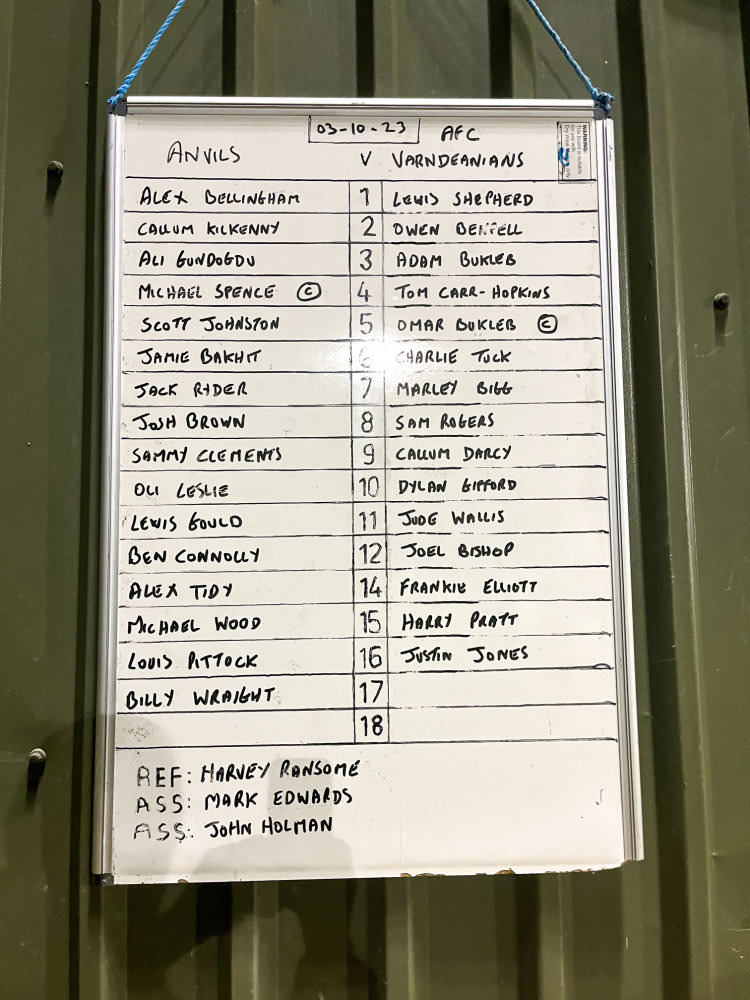 03-10-23
ANVILS V AFC VARNDEANIANS
WARNING:
ALEX BELLINGHAM 1 LEWIS SHEPHERD
CALLUM KILKENNY 2 OWEN BENFELL
ALI GUNDOGDU 3 ADAM BUKLEB
MICHAEL SPENCE © 4 TOM CARR-HOPKINS
SCOTT JOHNSTON 5 OMAR BUKLEB ©
JAMIE BAKHIT 6 CHARLIE TUCK
JACK RYDER 7 MARLEY BIGG
JOSH BROWN 8 SAM ROGERS
SAMMY CLEMENTS 9 CALLUM DARCY
OLI LESLIE 10 DYLAN GIFFORD
LEWIS GOULD 11 JUDE WALLIS
BEN CONNOLLY 12 JOEL BISHOP
ALEX TIDY 14 FRANKIE ELLIOTT
MICHAEL WOOD 15 HARRY PRATT
LOUIS PITTOCK 16 JUSTIN JONES
BILLY WRAIGHT 17
18
REF: HARVEY RANSOME
ASS: MARK EDWARDS
ASS: JOHN HOLMAN